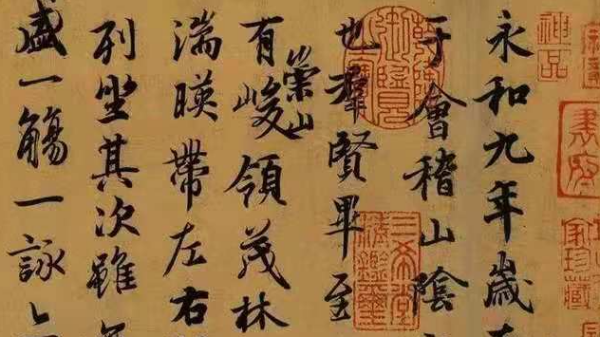 神品
永和九年歲
于會稽山陰
也羣賢畢至
有崇山峻領茂林
湍暎帶左右
列坐其次雖
盛一觴一詠
三希堂精鑑璽